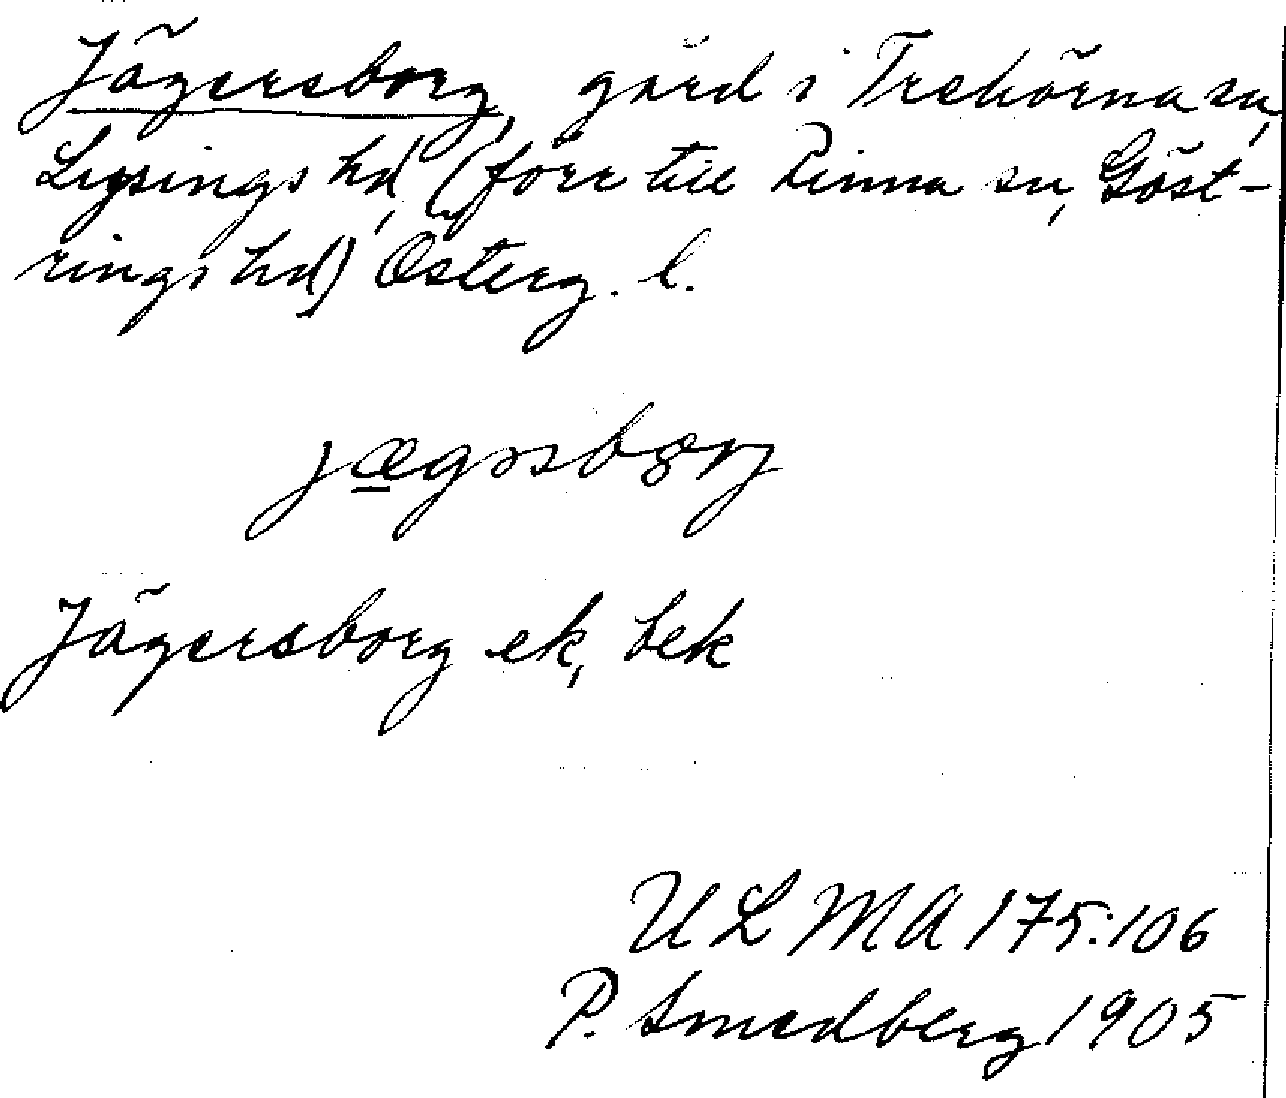 Jägersborg, gård i Trehörna sn,
Lysings hd, (förr till Rinna sn, Göst-
rings hd) Österg. l.
jægɔsbɞrj
Jägersborg ek, bek
ULMA 175:106
P. Smedberg 1905